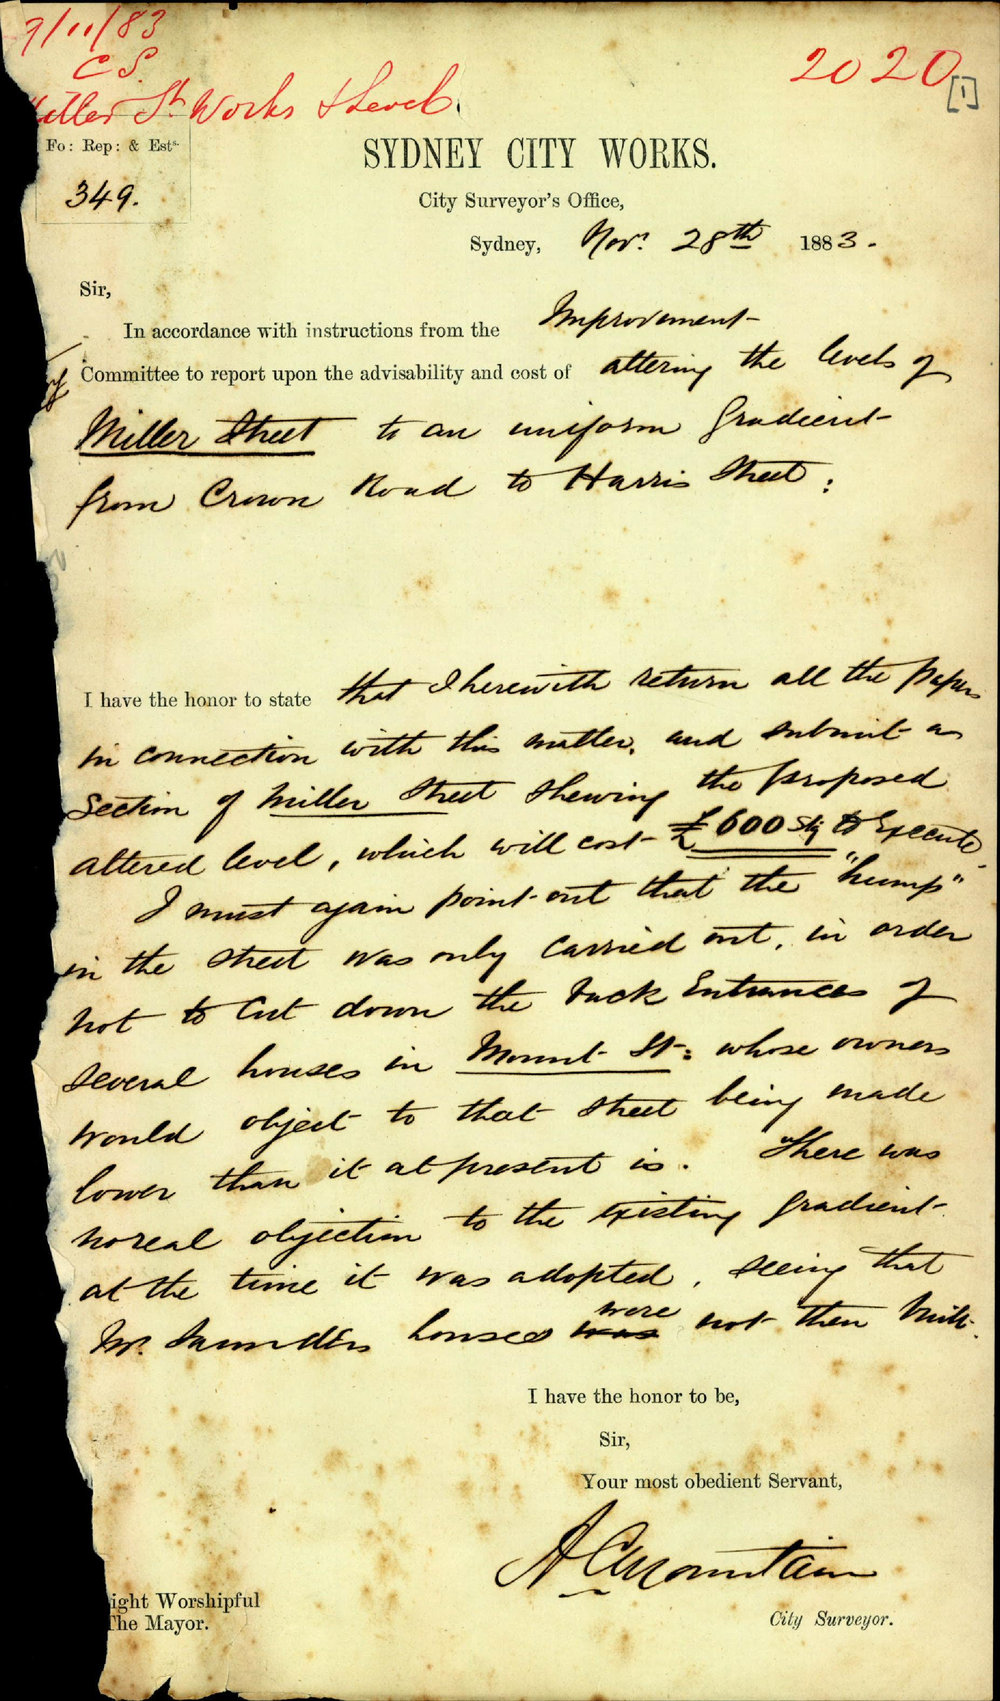 9/11/83
C S.
Miller St Works & Level
2020
[1]
Fo: Rep: & Ests.
349.
SYDNEY CITY WORKS.
City Surveyor's Office,
Sydney, Novr. 28th 1883.
Sir,
In accordance with instructions from the Improvement
Committee to report upon the advisability and cost of altering the levels of
Miller Street to an uniform gradient
from Crown Road to Harris Street:
I have the honor to state that I herewith return all the papers
in connection with this matter, and submit a
Section of Miller Street shewing the proposed
altered level, which will cost £600 stg to Execute.
I must again point out that the "hump"
in the street was only carried out, in order
not to Cut down the back Entrances of
several houses in Mount St: whose owners
would object to that street being made
lower than it at present is. There was
no real objection to the existing gradient
at the time it was adopted, seeing that
Mr. Saunders houses was were not then built.
I have the honor to be,
Sir,
Your most obedient Servant,
A C Mountain
City Surveyor.
ight Worshipful
The Mayor.